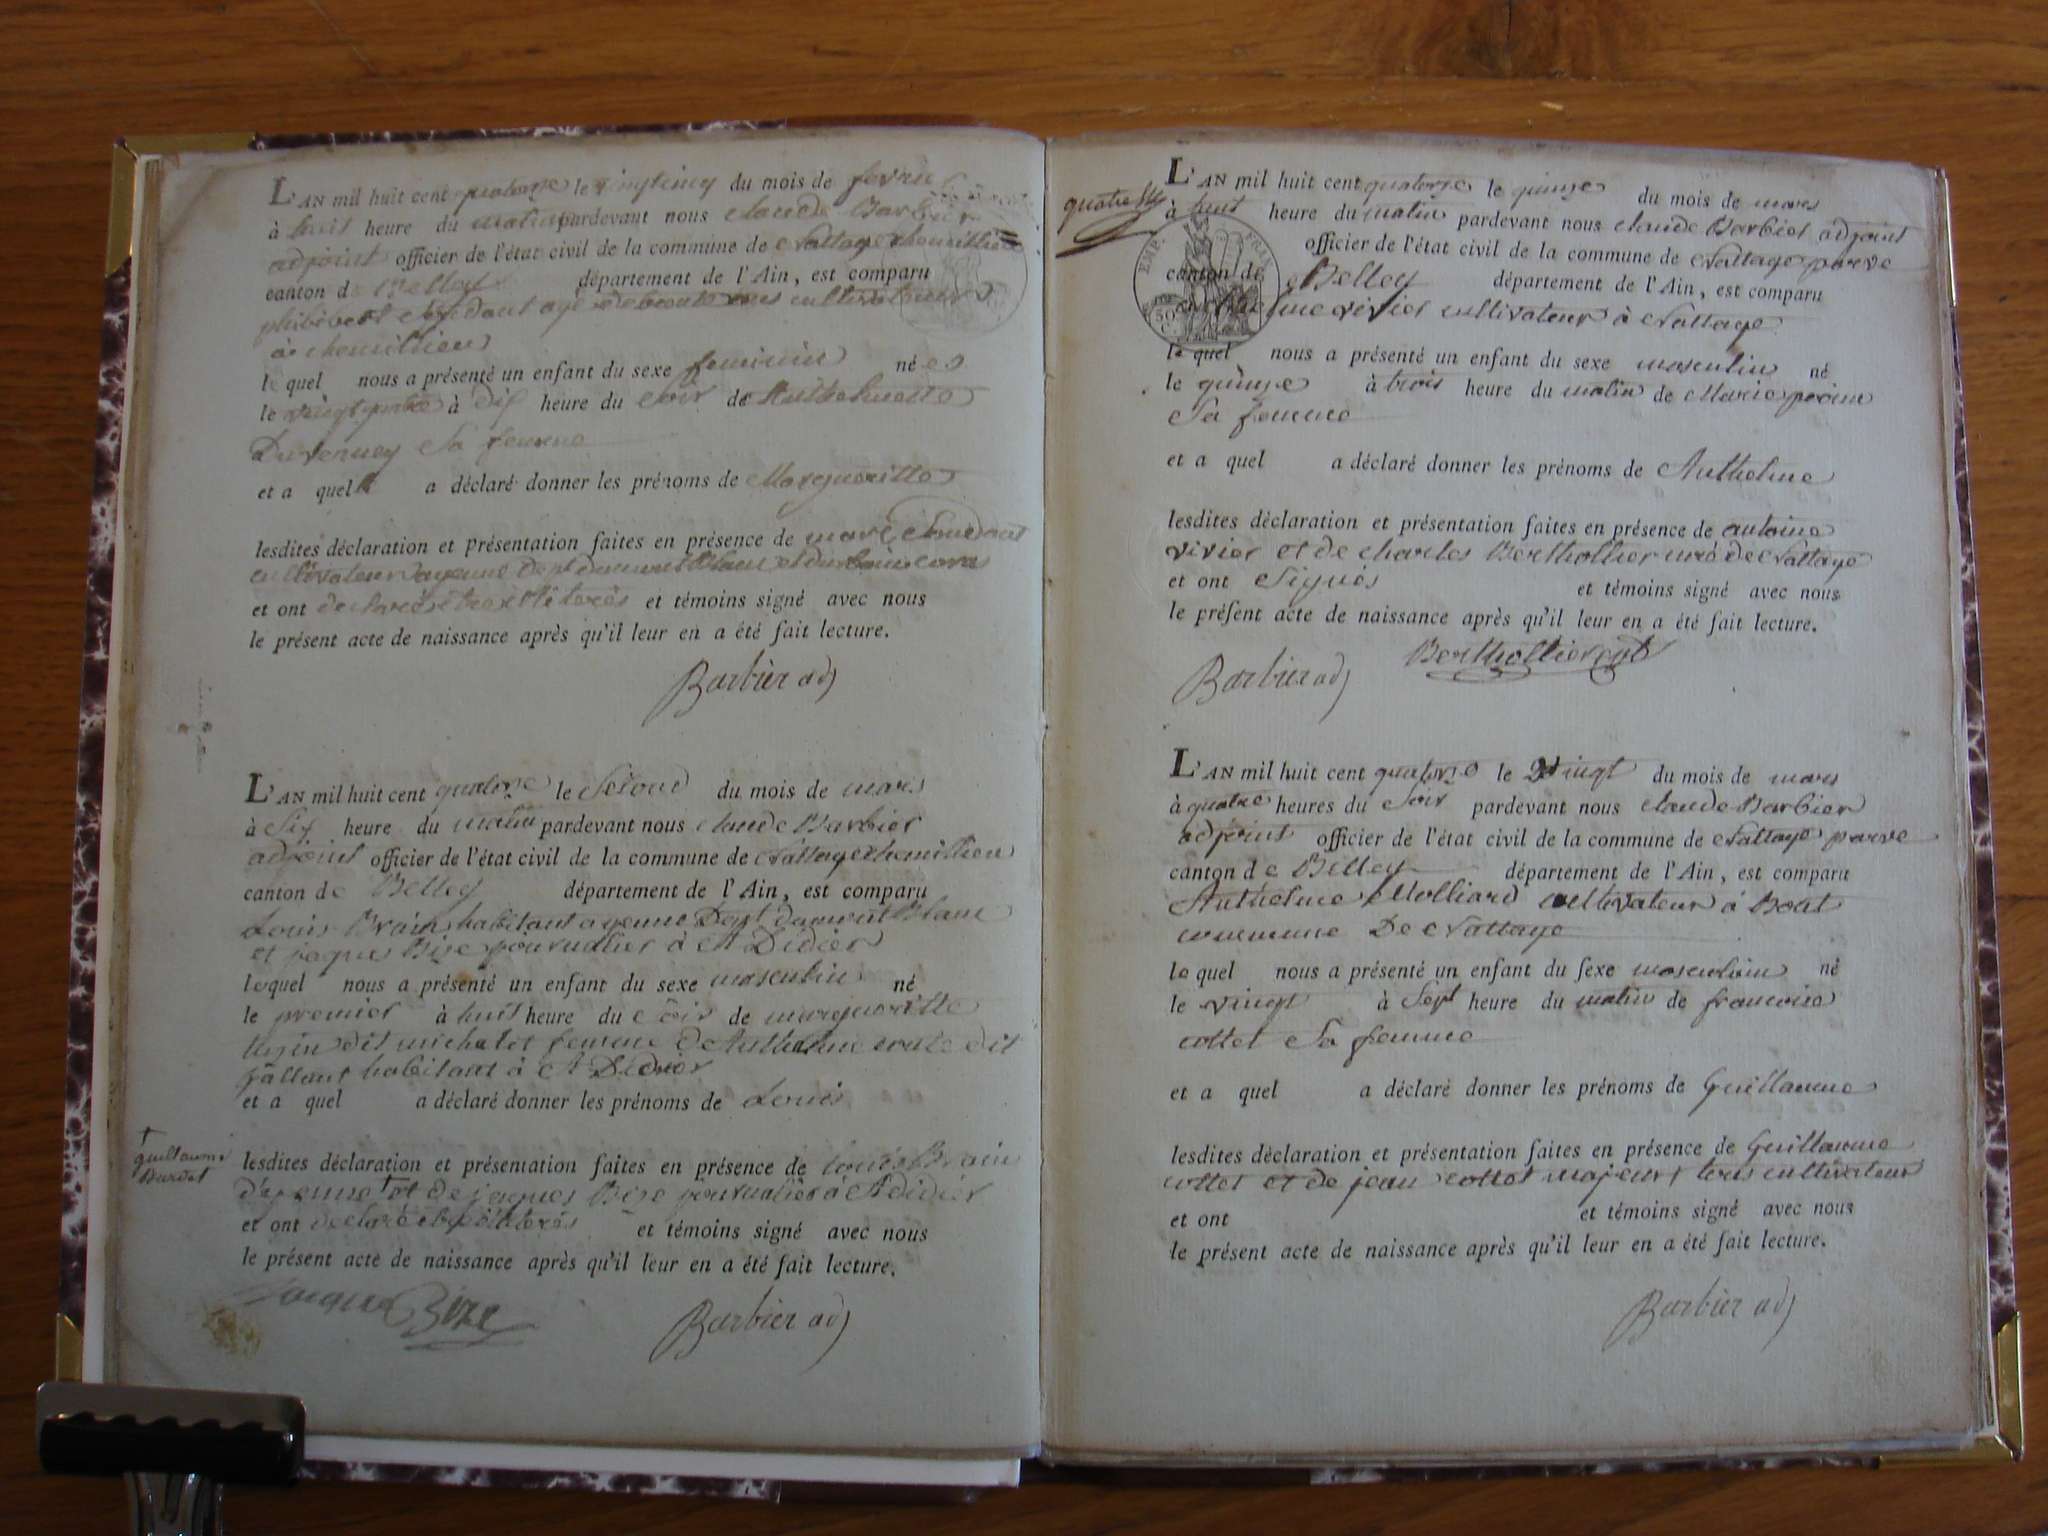 L'AN mil huit cent quatorze le vingtcinq du mois de fevrier
à huit heure du matin pardevant nous claude Barbier
adjoint officier de l'état civil de la commune de Nattage chemillieu
canton de Belley département de l'Ain, est comparu
âgé de cultivateur
à chemillieu
le quel nous a présenté un enfant du sexe feminin né e
le vingt quatre à dix heure du soir de Anthelmette
Duverney sa femme
et a quel a déclaré donner les prénoms de Margueritte
lesdites déclaration et présentation faites en présence de marc
cultivateur a yenne dept du mont Blanc et
et ont declarés être illiterés et témoins signé avec nous
le présent acte de naissance après qu'il leur en a été fait lecture.
Barbier adj
L'AN mil huit cent quatorze le second du mois de mars
à six heure du matin pardevant nous claude Barbier
adjoint officier de l'état civil de la commune de Nattage chemillieu
canton de Belley département de l'Ain, est comparu
Louis Brain habitant a yenne Dept du mont Blanc
et jaques Bize pourvalier à St Didier
lequel nous a présenté un enfant du sexe masculin né
le premier à huit heure du soir de margueritte
dit femme de Anthelme dit
habitant à St Didier
et a quel a déclaré donner les prénoms de Louis
guillaume
Burdet
lesdites déclaration et présentation faites en présence de Louis Brain
d'yenne et de jaques Bize pourvalier à St didier
et ont declaré illiterés et témoins signé avec nous
le présent acte de naissance après qu'il leur en a été fait lecture.
jacque Bize Barbier adj
quatre
L'AN mil huit cent quatorze le quinze du mois de mars
à huit heure du matin pardevant nous claude Barbier adjoint
officier de l'état civil de la commune de Nattage parve
canton de Belley département de l'Ain, est comparu
EMP. FRAN.
50 C.
anthelme vivier cultivateur à Nattage
le quel nous a présenté un enfant du sexe masculin né
le quinze à trois heure du matin de Marie
sa femme
et a quel a déclaré donner les prénoms de Anthelme
lesdites déclaration et présentation faites en présence de antoine
vivier et de charles Berthollier curé de Nattage
et ont signés et témoins signé avec nous
le présent acte de naissance après qu'il leur en a été fait lecture.
Barbier adj Berthollier curé
L'AN mil huit cent quatorze le vingt du mois de mars
à quatre heures du soir pardevant nous claude Barbier
adjoint officier de l'état civil de la commune de Nattage parve
canton de Belley département de l'Ain, est comparu
Anthelme Molliard cultivateur à Bout
commune De Nattage
le quel nous a présenté un enfant du sexe masculin né
le vingt à sept heure du matin de francoise
cottet sa femme
et a quel a déclaré donner les prénoms de Guillaume
lesdites déclaration et présentation faites en présence de Guillaume
cottet et de jean cottet majeurs tous cultivateur
et ont et témoins signé avec nous
le présent acte de naissance après qu'il leur en a été fait lecture.
Barbier adj